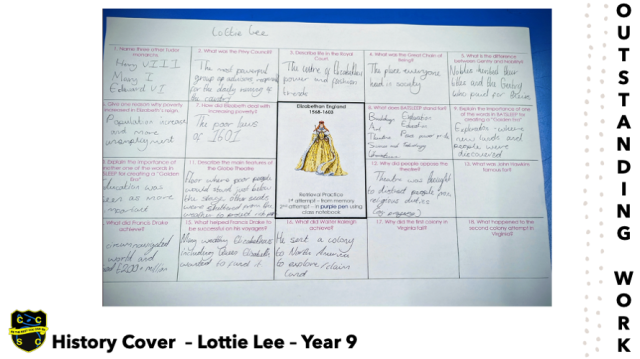 Lottie Lee
1. Name three other Tudor monarchs.
Henry VIII
Mary I
Edward VI
2. What was the Privy Council?
The most
group of advisors
for the daily running of
the country
3. Describe life in the Royal Court.
The centre of Elizabethan
power and fashion
trends
4. What was the Great Chain of Being?
The place everyone
had in society
5. What is the difference between Gentry and Nobility?
Nobles
titles and the Gentry
6. Give one reason why poverty increased in Elizabeth's reign.
Population increase
and more
unemployment
7. How did Elizabeth deal with increasing poverty?
The poor laws
of 1601
Elizabethan England
1568-1603
Retrieval Practice
1st attempt - from memory
2nd attempt - in purple pen using
class notebook
8. What does BATSLEEP stand for?
Buildings Exploration
Art Education
Theatre
Science and Technology
Literature
9. Explain the importance of one of the words in BATSLEEP for creating a "Golden Era"
Exploration - when
new lands and
people were
discovered
Explain the importance of another one of the words in for creating a "Golden Era"
Education was
seen as more
important
11. Describe the main features of the Globe theatre.
poor people
would stand just below
the stage, other seats
were sheltered from the
weather
12. Why did people oppose the theatre?
Theatre was thought
to distract people from
religious duties
13. What was John Hawkins famous for?
What did Francis Drake achieve?
circumnavigated
world and
15. What helped Francis Drake to be successful on his voyages?
Many wealthy Elizabethans
including Queen Elizabeth
wanted to fund it
16. What did Walter Raleigh achieve?
He sent a colony
to North America
to explore/claim
land
17. Why did the first colony in Virginia fail?
18. What happened to the second colony attempt in Virginia?
OUTSTANDING WORK
C C
S C
History Cover – Lottie Lee – Year 9